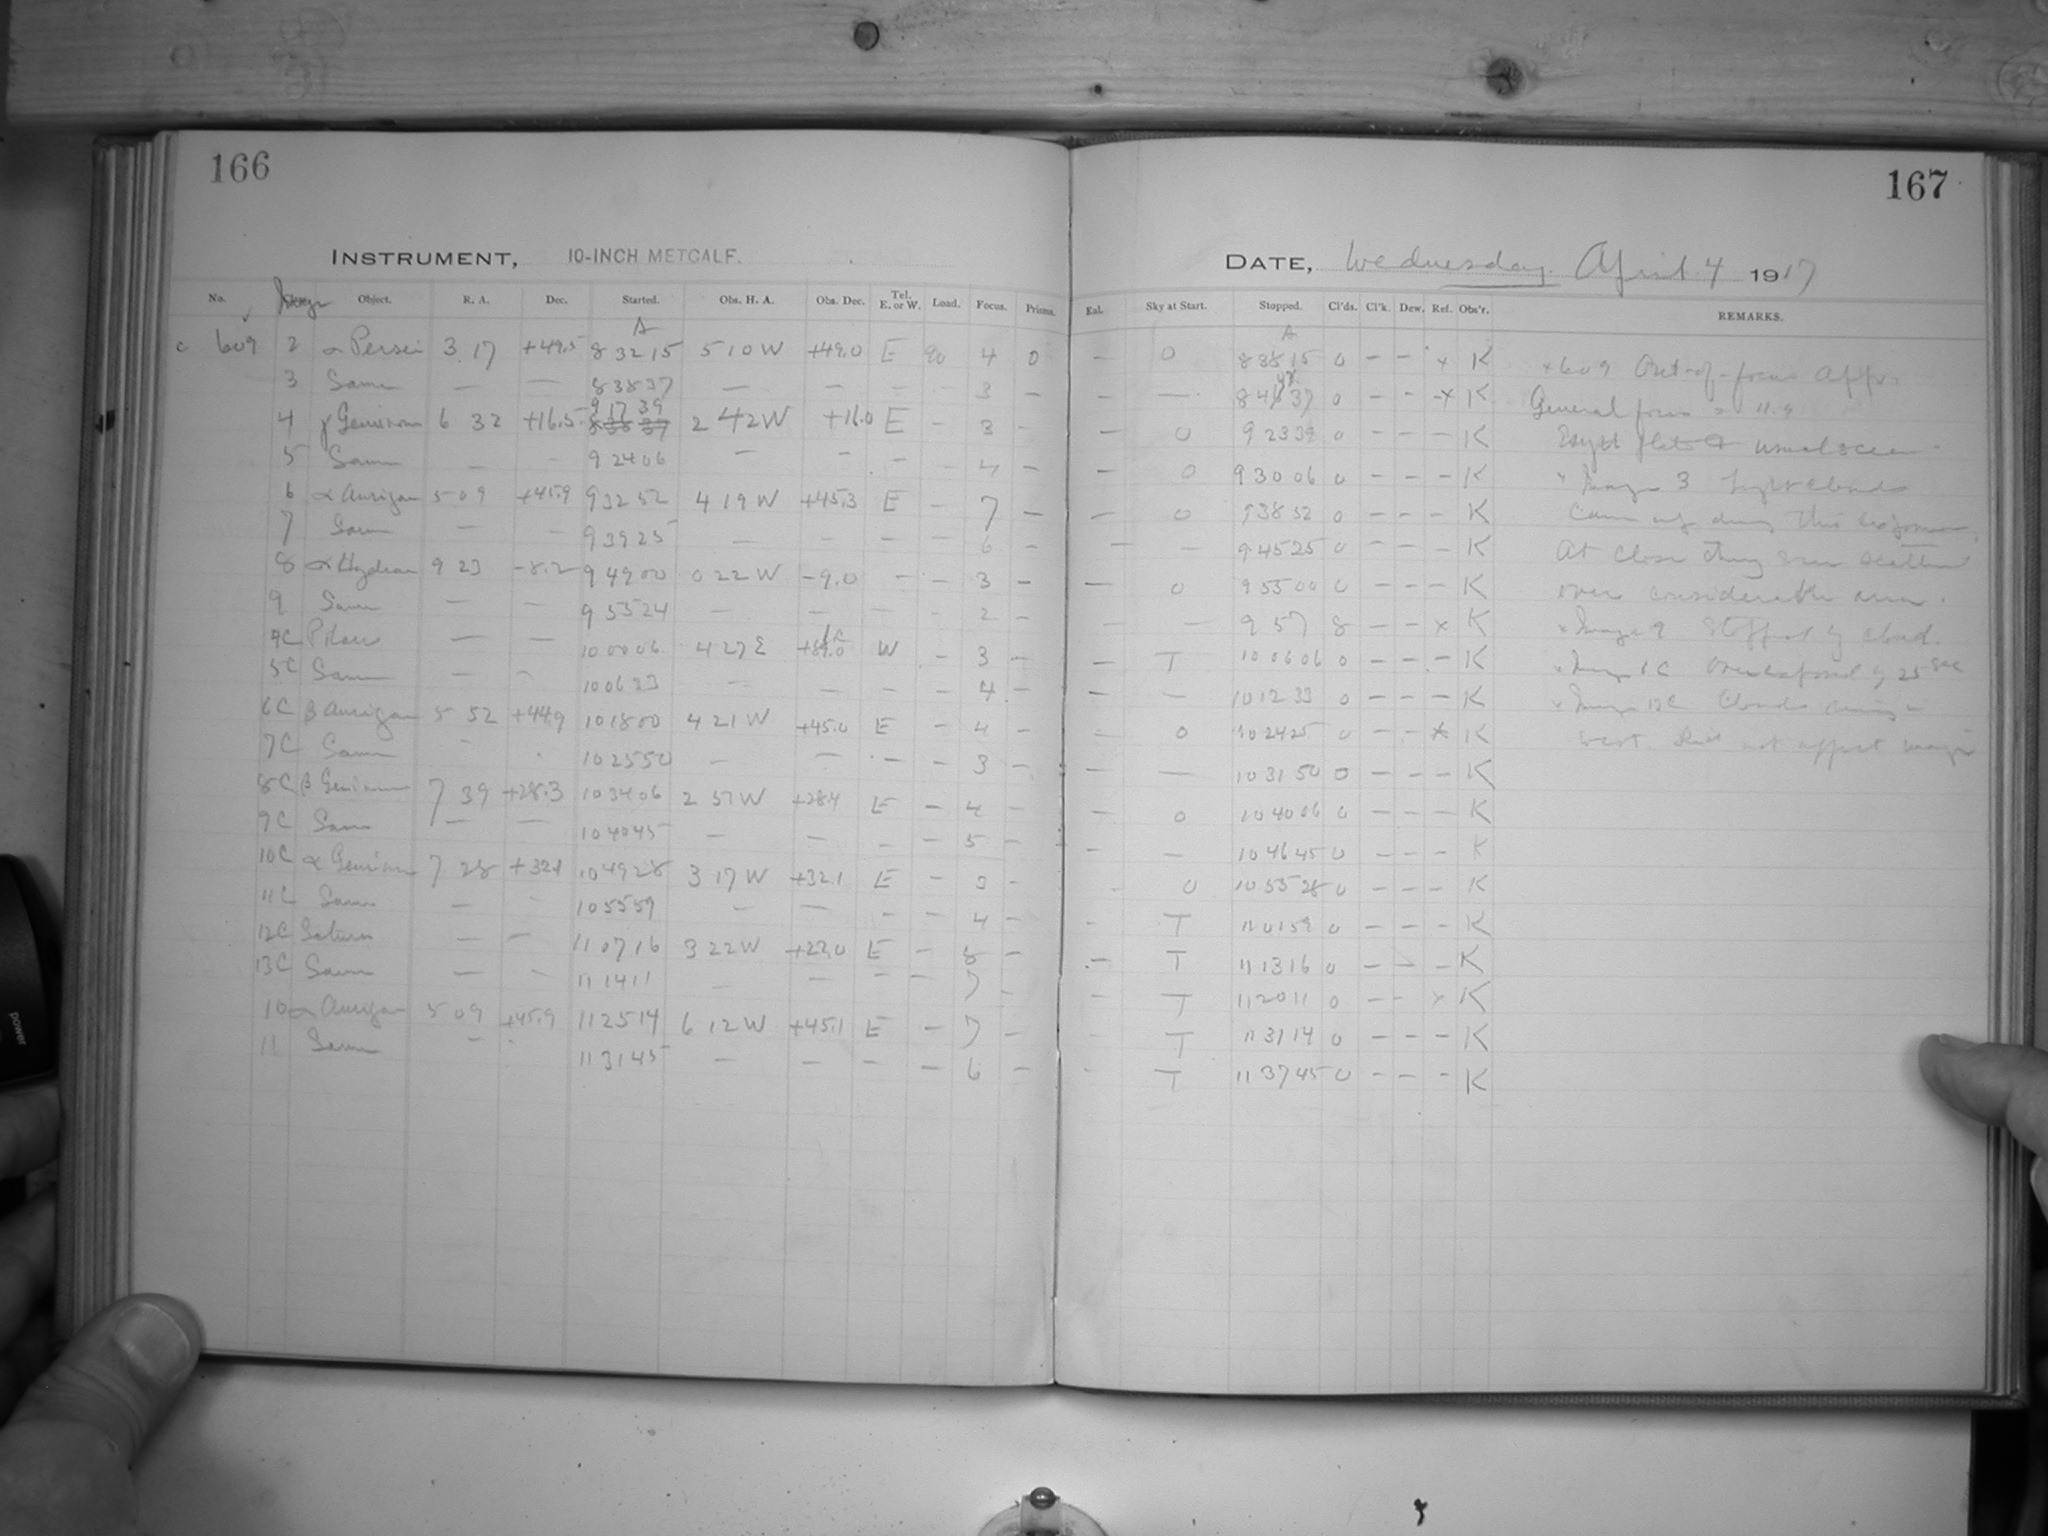 166
167
INSTRUMENT, 10-INCH METCALF.
DATE, Wednesday April 4 1917
No. Image Object. R. A. Dec. Started. Obs. H. A. Obs. Dec. Tel. E. or W. Load. Focus. Prisms. Eal. Sky at Start. Stopped. Cl'ds. Cl'k. Dew. Ref. Obs'r. REMARKS.
A A
c 609 2 α Persei 3 17 +49.5 8 32 15 5 10 W +49.0 E 90 4 0 — 0 8 38 15 0 — — x K x 609 Out-of-focus Appr.
3 Same — — 8 38 37 — — — — 3 — — — 8 44 37 0 — — x K General focus = 11.9
4 γ Geminorum 6 32 +16.5 9 17 39 2 42 W +16.0 E — 3 — — 0 9 23 39 0 — — — K
5 Same — — 9 24 06 — — — — 4 — — 0 9 30 06 0 — — — K x Image 3 Light clouds
6 α Aurigae 5 09 +45.9 9 32 52 4 19 W +45.3 E — 7 — — 0 9 38 52 0 — — — K came up during this exposure.
7 Same — — 9 39 25 — — — — 6 — — — 9 45 25 0 — — — K At close they were scattered
8 α Hydrae 9 23 -8.2 9 49 00 0 22 W -9.0 — — 3 — — 0 9 55 00 0 — — — K over considerable area.
9 Same — — 9 55 24 — — — — 2 — — — 9 57 8 — — x K x Image 9 Stopped by cloud.
4C Polaris — — 10 00 06 4 27 E +89.0 W — 3 — — T 10 06 06 0 — — — K x Image 6C Overexposed by 25 sec
5C Same — — 10 06 33 — — — — 4 — — — 10 12 33 0 — — — K x Image 13C Clouds coming in
6C β Aurigae 5 52 +44.9 10 18 00 4 21 W +45.0 E — 4 — — 0 10 24 25 0 — — x K west. Did not affect image
7C Same — — 10 25 50 — — — — 3 — — — 10 31 50 0 — — — K
8C β Geminorum 7 39 +28.3 10 34 06 2 57 W +28.4 E — 4 — — 0 10 40 06 0 — — — K
9C Same — — 10 40 45 — — — — 5 — — — 10 46 45 0 — — — K
10C α Geminorum 7 28 +32.1 10 49 28 3 17 W +32.1 E — — — 0 10 55 28 0 — — — K
11C Same — — 10 55 59 — — — — 4 — — T 11 01 59 0 — — — K
12C Saturn — — 11 07 16 3 22 W +23.0 E — 8 — — T 11 13 16 0 — — — K
13C Same — — 11 14 11 — — — — 7 — — T 11 20 11 0 — — x K
10 α Aurigae 5 09 +45.9 11 25 14 6 12 W +45.1 E — 7 — — T 11 31 14 0 — — — K
11 Same — — 11 31 45 — — — — 6 — — T 11 37 45 0 — — — K
power